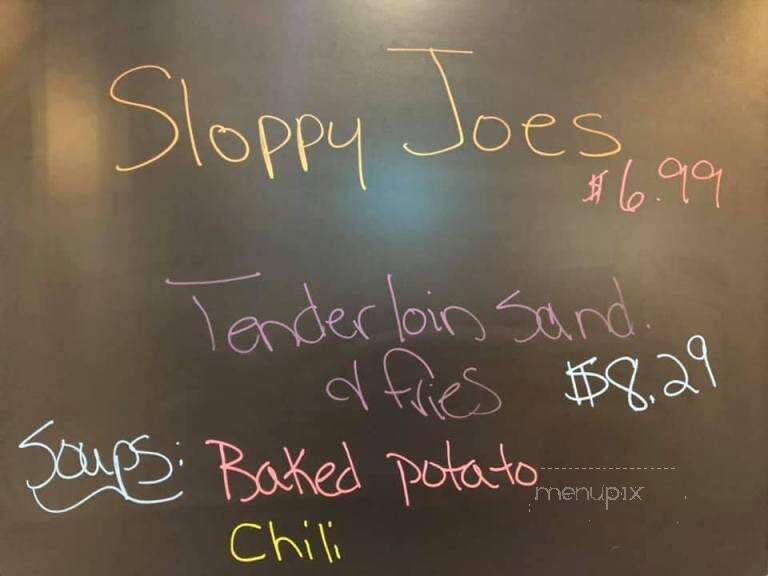 Sloppy Joes
$6.99
Tenderloin Sand.
& fries $8.29
Soups: Baked potato
menupix
Chili